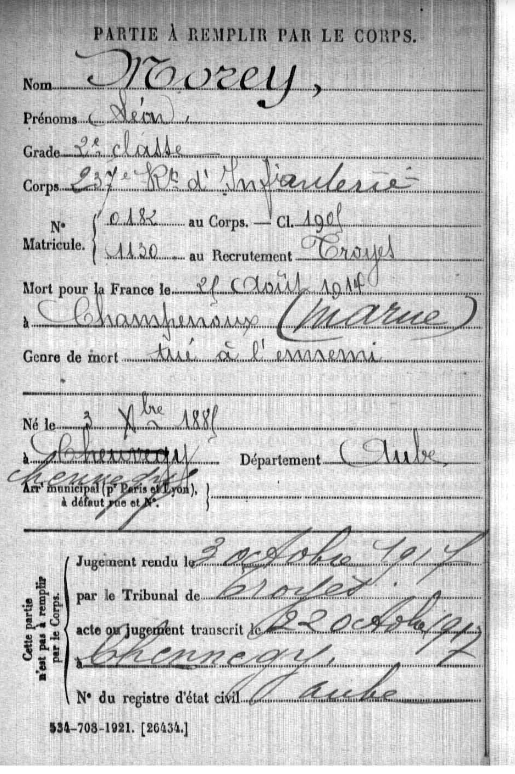 PARTIE À REMPLIR PAR LE CORPS.
Nom Morey,
Prénoms Léon,
Grade 2e classe
Corps 237e Rt d'Infanterie
N° Matricule. 0182 au Corps. — Cl. 1905
1130 au Recrutement Troyes
Mort pour la France le 25 Août 1914
à Champenoux (Marne)
Genre de mort tué à l'ennemi
Né le 3 Xbre 1885
à Chennegy Département Aube
Chennegy
Arrt municipal (pr Paris et Lyon),
à défaut rue et N°.
Cette partie n'est pas à remplir par le Corps.
Jugement rendu le 3 octobre 1917
par le Tribunal de Troyes.
acte ou jugement transcrit le 22 octobre 1917
à Chennegy,
N° du registre d'état civil aube
534-708-1921. [26434.]